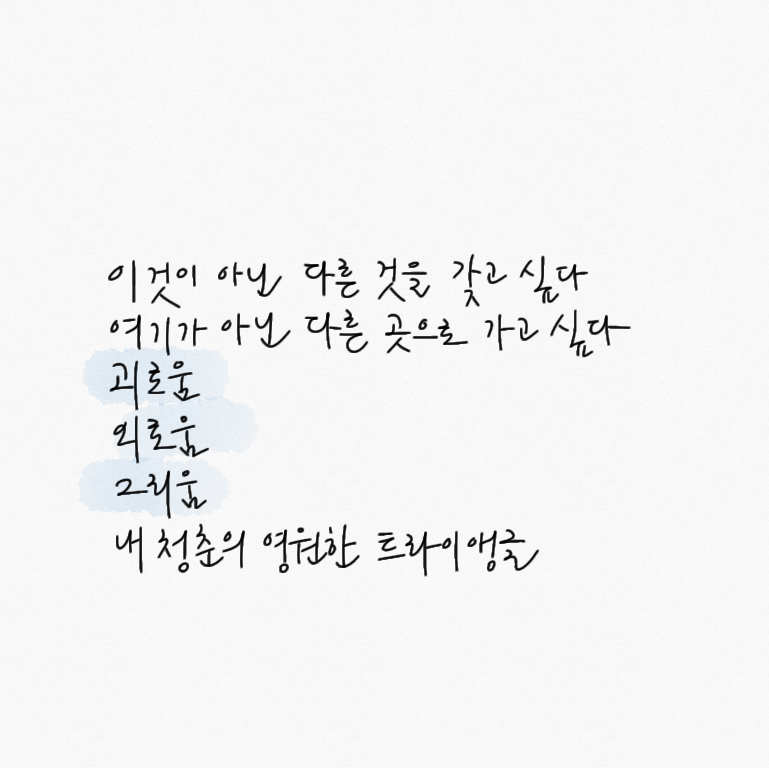 이것이 아닌 다른 것을 갖고 싶다
여기가 아닌 다른 곳으로 가고 싶다
괴로움
외로움
그리움
내 청춘의 영원한 트라이앵글